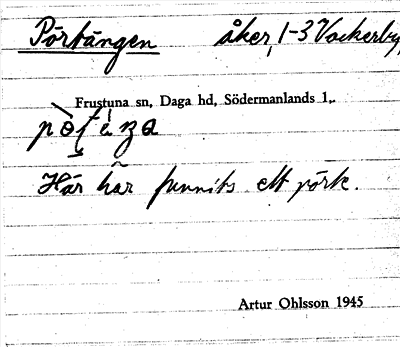 Pörtängen åker, 1-3 Vockerby,
Frustuna sn, Daga hd, Södermanlands l,.
Här har funnits ett pörte.
Artur Ohlsson 1945